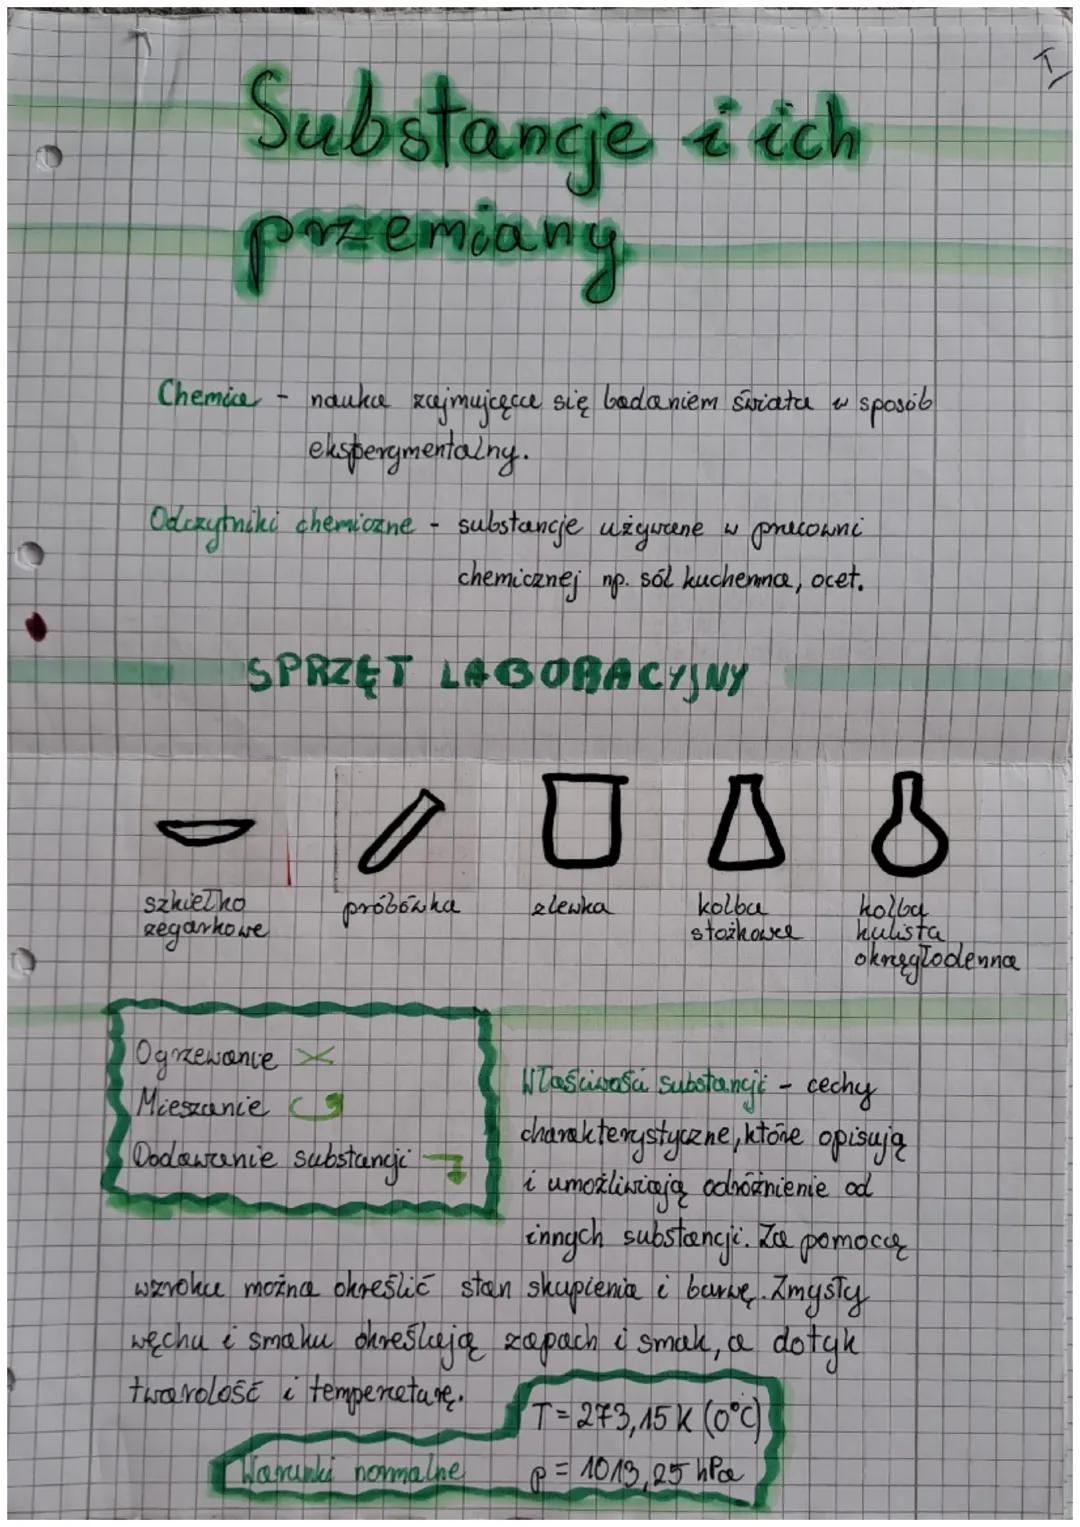 I
Substancje i ich
przemiany
Chemia - nauka zajmująca się badaniem świata w sposób
eksperymentalny.
Odczytniki chemiczne - substancje używane w pracowni
chemicznej np. sól kuchenna, ocet.
SPRZĘT LABORACYJNY
szkiełko
zegarkowe
próbówka
zlewka
kolba
stożkowa
kolba
kulista
okrągłodenna
Ogrzewanie
Mieszanie
Dodawanie substancji
Właściwości substancji - cechy
charakterystyczne, które opisują
i umożliwiają odróżnienie od
innych substancji. Za pomocą
wzroku można określić stan skupienia i barwę. Zmysły
węchu i smaku określają zapach i smak, a dotyk
twardość i temperaturę.
T = 273,15 K (0°C)
Warunki normalne p = 1013,25 hPa